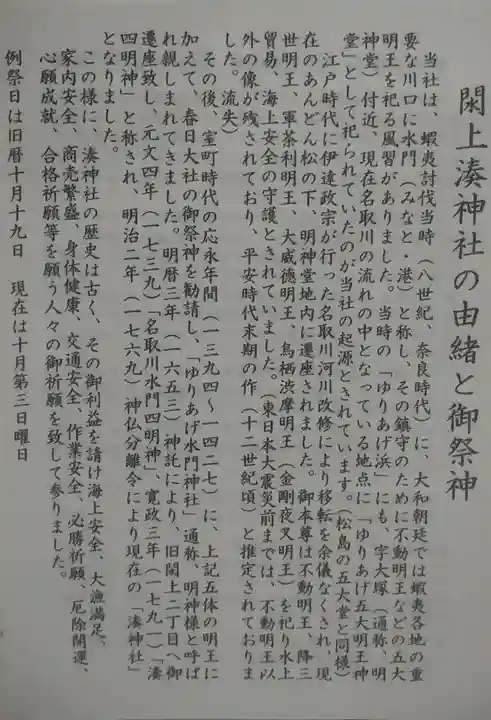 閖上湊神社の由緒と御祭神
当社は、蝦夷討伐当時（八世紀、奈良時代）に、大和朝廷では蝦夷各地の重
要な川口に水門（みなと・港）と称し、その鎮守のために不動明王などの五大
明王を祀る風習がありました。当時の「ゆりあげ浜」にも、字大塚（通称、明
神堂）付近、現在名取川の流れの中となっている地点に「ゆりあげ五大明王神
堂」として祀られていたのが当社の起源とされています。（松島の五大堂と同様）
江戸時代に伊達政宗が行った名取川河川改修により移転を余儀なくされ、現
在のあんどん松の下、明神堂地内に遷座されました。御本尊は不動明王、降三
世明王、軍茶利明王、大威德明王、烏栖渋摩明王（金剛夜叉明王）を祀り水上
貿易、海上安全の守護とされていました。（東日本大震災前までは、不動明王以
外の像が残されており、平安時代末期の作（十二世紀頃）と推定されておりま
した。流失）
その後、室町時代の応永年間（一三九四～一四二七）に、上記五体の明王に
加えて、春日大社の御祭神を勧請し、「ゆりあげ水門神社」通称、明神様と呼ば
れ親しまれてきました。明暦三年（一六五三）神託により、旧閖上二丁目へ御
遷座致し、元文四年（一七三九）「名取川水門四明神」、寛政三年（一七九一）「湊
四明神」と称され、明治二年（一七六九）神仏分離令により現在の「湊神社」
となりました。
この様に、湊神社の歴史は古く、その御利益を請け海上安全、大漁満足、
家内安全、商売繁盛、身体健康、交通安全、作業安全、必勝祈願、厄除開運、
心願成就、合格祈願等を願う人々の御祈願を致して参りました。
例祭日は旧暦十月十九日　現在は十月第三日曜日